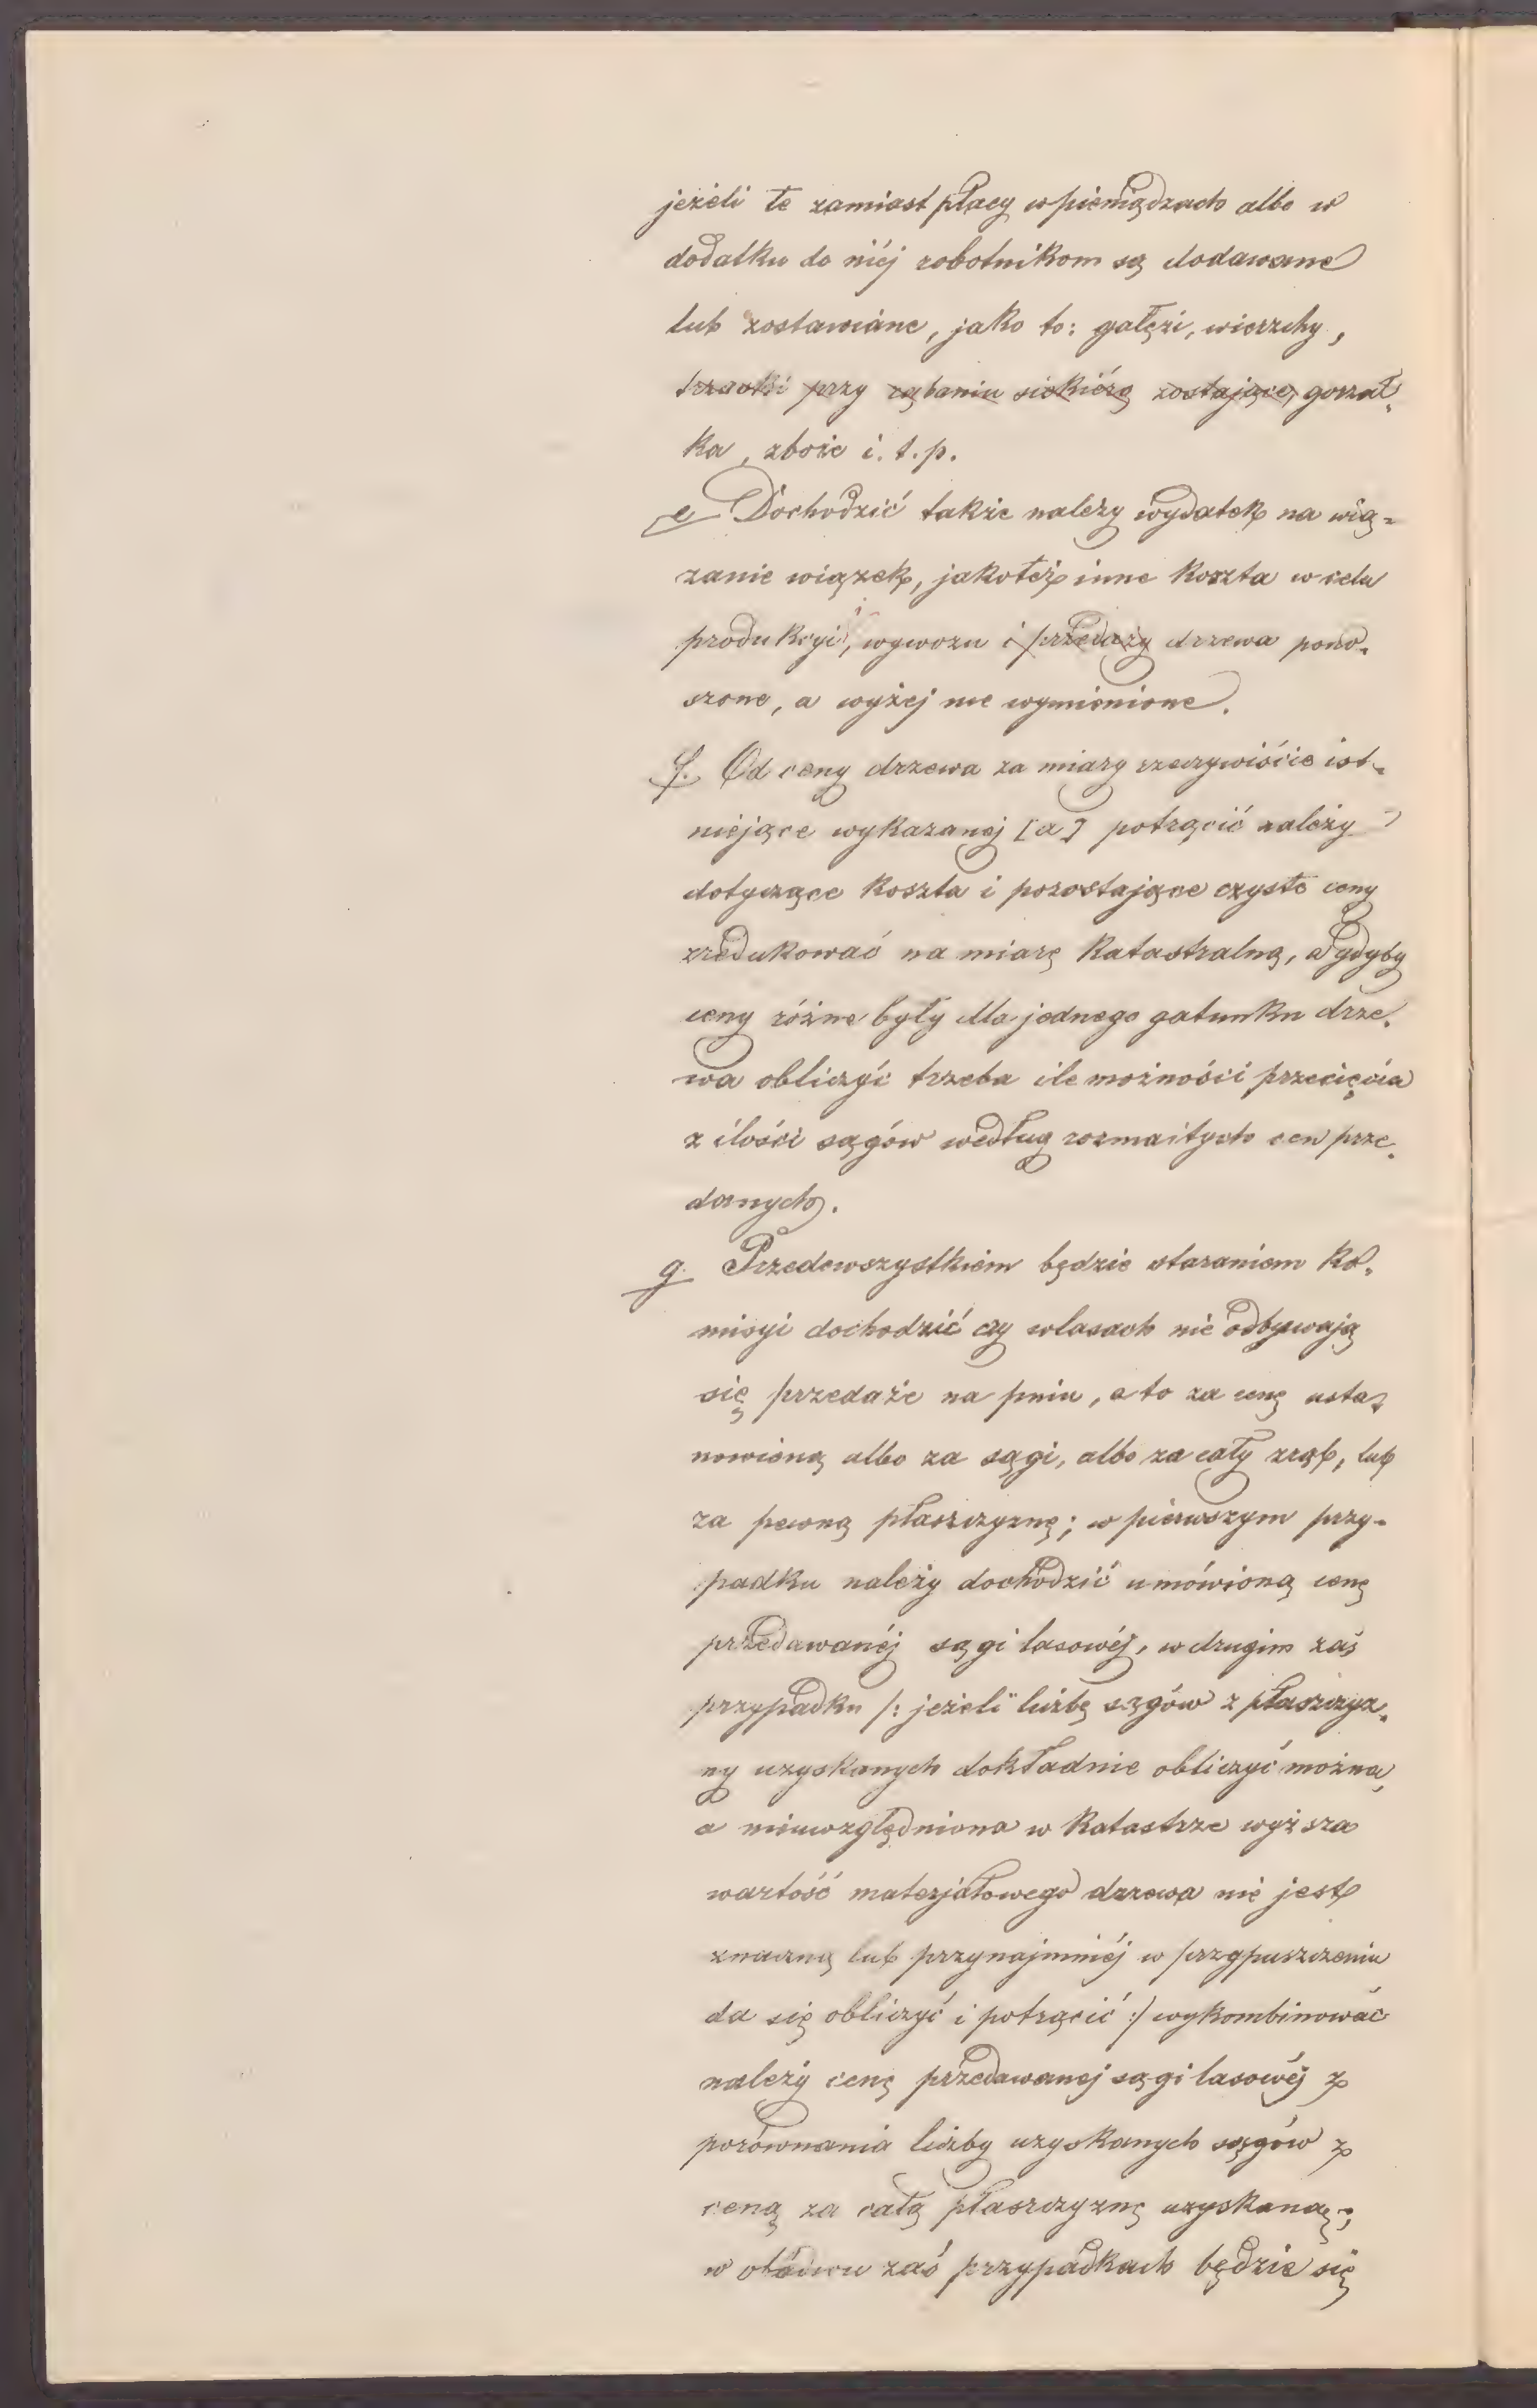 jeżeli te zamiast płacy w pieniądzach albo w
dodatku do niéj robotnikom są dodawane
lub zostawiane, jako to: gałęzi, wierzchy,
trzaski przy rąbaniu siekiérą zostające, gorzał-
ka, zboże i. t. p.
e Dochodzić także należy wydatek na wią-
zanie wiązek, jakoteż inne koszta w celu
produkcyi, wywozu i przedaży drzewa pono-
szone, a wyżej nie wymienione.
f. Od ceny drzewa za miary rzeczywiście ist-
niejące wykazanej [a] potrącić należy
dotyczące koszta i pozostające czyste ceny
zredukować na miarę katastralną, a gdyby
ceny różne były dla jednego gatunku drze-
wa obliczyć trzeba ile możności przecięcia
z ilości sągów według rozmaitych cen prze-
danych.
g Przedewszystkiem będzie staraniem Ko-
misyi dochodzić czy w lasach nie odbywają
się przedaże na pniu, a to za cenę usta-
nowioną albo za sągi, albo za cały zrąb, lub
za pewną płaszczyznę; w pierwszym przy-
padku należy dochodzić umówioną cenę
przedawanéj sągi lasowéj, w drugim zaś
przypadku /: jeżeli liczbę sągów z płaszczyz-
ny uzyskanych dokładnie obliczyć można,
a nieuwzględniona w katastrze wyższa
wartość materjałowego drzewa nie jest
znaczną lub przynajmniéj w przypuszczeniu
da się obliczyć i potrącić :/ wykombinować
należy cenę przedawanej sągi lasowéj z
porównania liczby uzyskanych sągów z
ceną za całą płaszczyznę uzyskaną;
w obódwu zaś przypadkach będzie się